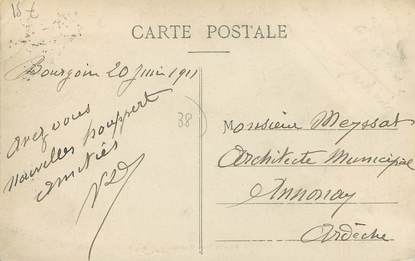 15 €
CARTE POSTALE
Bourgoin 20 Juin 1911
38
Avez vous
nouvelles
amitiés
Monsieur Meyssat
Architecte Municipal
Annonay
Ardèche